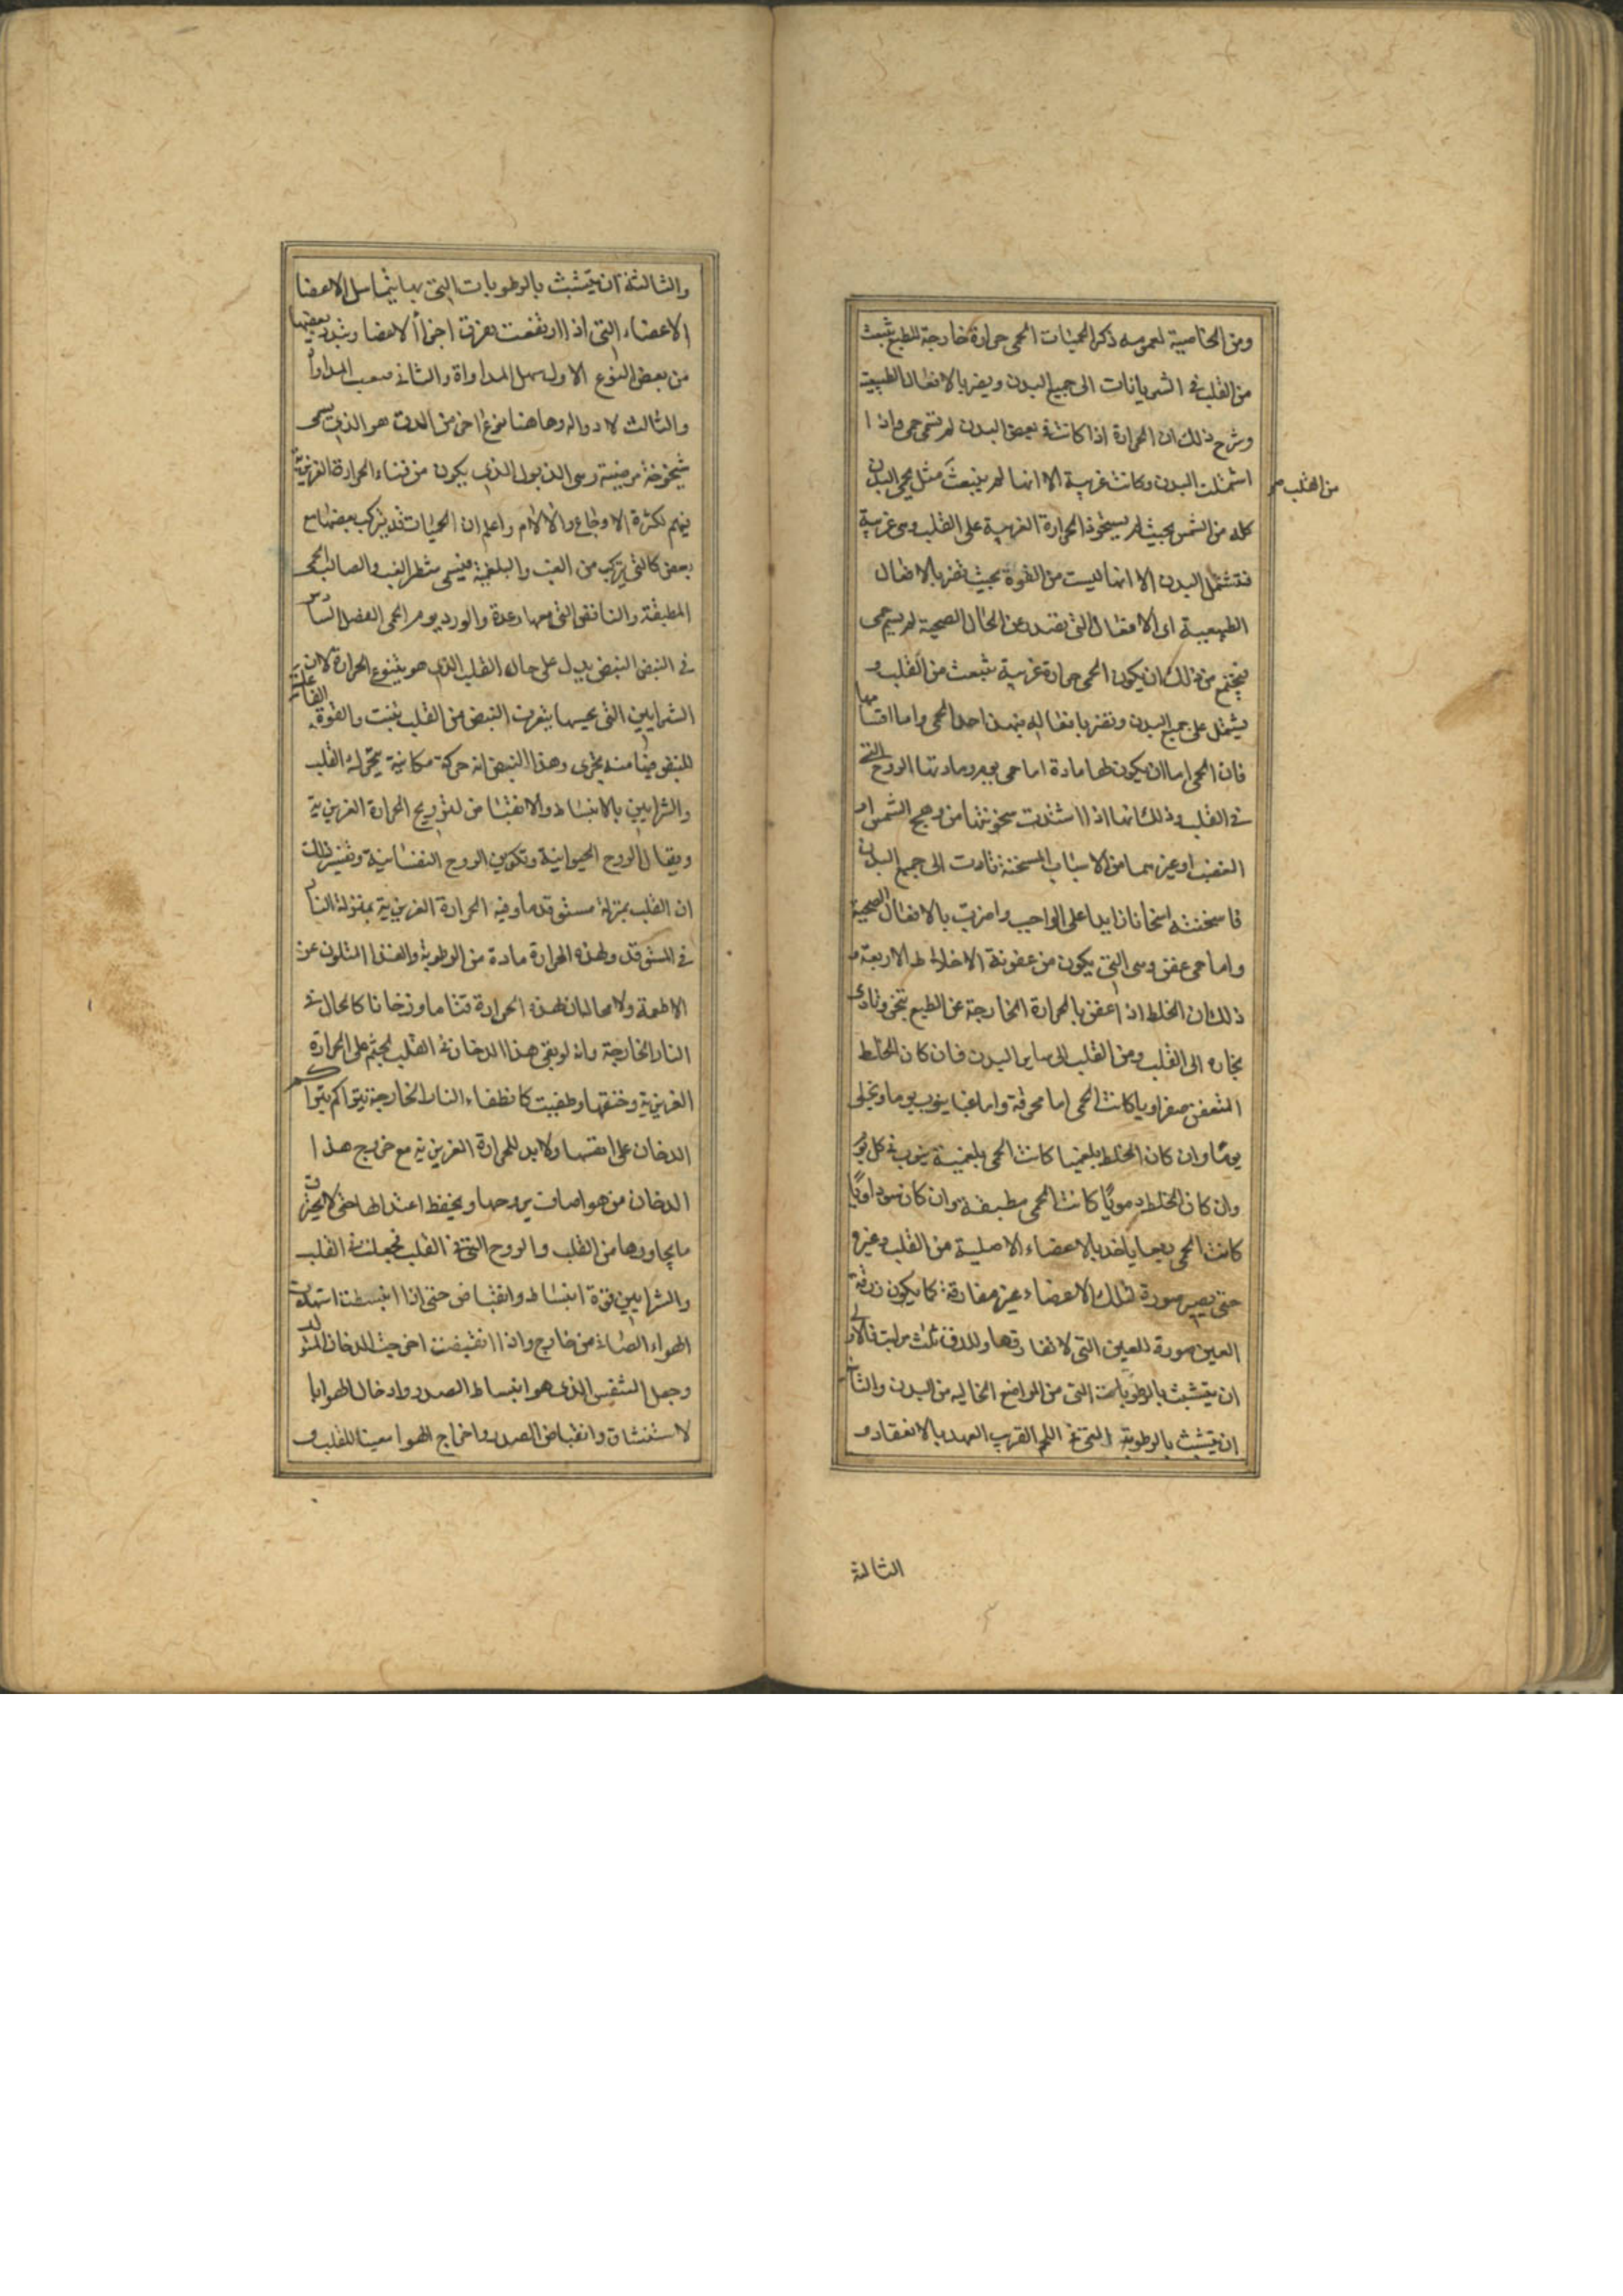 ومن الخاصية لعمومه ذكر الحميات الحمى حرارة خارجة للطبع تنبعث
من القلب في الشريانات الى جميع البدن ويضر بالافعال الطبيعية
وشرح ذلك ان الحرارة اذا كانت في بعض البدن لم تسمى حمى واذا
اشتملت البدن وكانت غريبة الا انها لم ينبعث مثل يحمى البدن
من القلب صح
كله من الشمس بحيث لم يستحوذ الحرارة الغريبة على القلب وهى غريبة
فتشتمل البدن الا انها ليست من القوة بحيث تضر بالافعال
الطبيعية اى الافعال التى تصدر عن الحال الصحية لم يسم حمى
فيجتمع من ذلك ان يكون الحمى حرارة غريبة تنبعث من القلب و
يشتمل على جميع البدن وتضر بافعاله فهذا حد الحمى واما اقسامها
فان الحمى اما ان يكون لها مادة اما حمى يوم ومادتها الروح التى
في القلب وذلك انها اذا اشتدت سخونتها من وهج الشمس او
الغضب او غيرهما من الاسباب المسخنة تادت الى جميع البدن
فاسخنته اسخانا زايدا على الواجب واضرت بالافعال الصحية
واما حمى عفن وهى التى يكون من عفونة الاخلاط الاربعة و
ذلك ان الخلط اذا عفن بالحرارة الخارجة عن الطبع تبخر وتادى
بخاره الى القلب ومن القلب الى ساير البدن فان كان الخلط
المتعفن صفراويا كانت الحمى اما محرقة واما غبا ينوب يوما ويخلى
يوما وان كان الخلط بلغميا كانت الحمى بلغمية ينوب في كل يوم
وان كان الخلط دمويا كانت الحمى مطبقة وان كان سوداويا
كانت الحمى ربعا ياخذ بالاعضاء الاصلية من القلب وغيره
حتى يصير صورة لتلك الاعضاء غير مفارقة كما يكون زرقة
العين صورة للعين التى لا تفارقها وللدق ثلث مراتب فالاولى
ان يتشبث بالرطوبات التى من المواضع الخاليه من البدن والثانية
ان يتشبث بالرطوبة التى في اللحم القريب العهد بالانعقاد و
الثالثة
والثالثة ان يتشبث بالرطوبات التى بها يتماسل الاعضا
الاعضاء التى اذا ارتفعت تفرقت اجزأ الاعضا وتبدد بعضها
من بعض النوع الاول سهل المداواة والثانى صعب المداواة
والثالث لا دواله وهاهنا نوع اخر من الدق هو الذى يسمى
شيخوخة مرضية وهى الذبول الذى يكون من فناء الحرارة الغريزية
فيهم لكثرة الاوجاع والآلام واعلم ان الحميات قد يتركب بعضها مع
بعض كالتى يتركب من الغب والبلغمية فيسمى شطر الغب والصالب الحمى
المطبقة والنافض التى معها رعدة والورد يوم الحمى الفصل السادس
في النبض النبض يدل على حال القلب الذى هو ينبوع الحرارة لان
الشرايين التى بجسها يتعرف النبض من القلب تنبت والقوة الفاعلية
للنبض فيها منه يجرى وهذا النبض انه حركة مكانية يتحركه القلب
والشرايين بالانبساط والانقباض لترويح الحرارة الغريزية
وبقا الروح الحيوانية وتكوين الروح النفسانية وتفسير ذلك
ان القلب بمنزلة مستوقد ما وفيه الحرارة الغريزية بمنزلة النار
في المستوقد ولهذه الحرارة مادة من الرطوبة والغذا المتلون عن
الاطعمة ولا محالة ان لهذه الحرارة قتاما ودخانا كالحال في
النار الخارجة وانه لو بقى هذا الدخان في القلب لجثم على الحرارة
الغريزية وخنقها وطفيت كانطفاء النار الخارجة بتراكم
الدخان على انفسها ولا بد للحرارة الغريزية مع خروج هذا
الدخان من هوا صاف يروحها ويحفظ اعتدالها حتى لا يحترق
ما يجاورها من القلب والروح التى في القلب فجعلت في القلب
والشرايين قوة انبساط وانقباض حتى اذا انبسطت استمدت
الهواء الصافى من خارج واذا انقبضت اخرجت الدخان المتولد
وجعل التنفس الذى هو انبساط الصدر وادخال الهوا با
لاستنشاق وانقباض الصدر واخراج الهوا معينا للقلب و